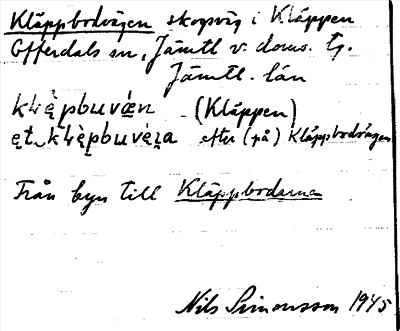 Kläppbodvägen skogsväg i Kläppen
Offerdals sn, Jämtl v. doms. tg.
Jämtl. län
(Kläppen)
efter (på) Kläppbodvägen
Från byn till Kläppbodarna
Nils Simonsson 1945